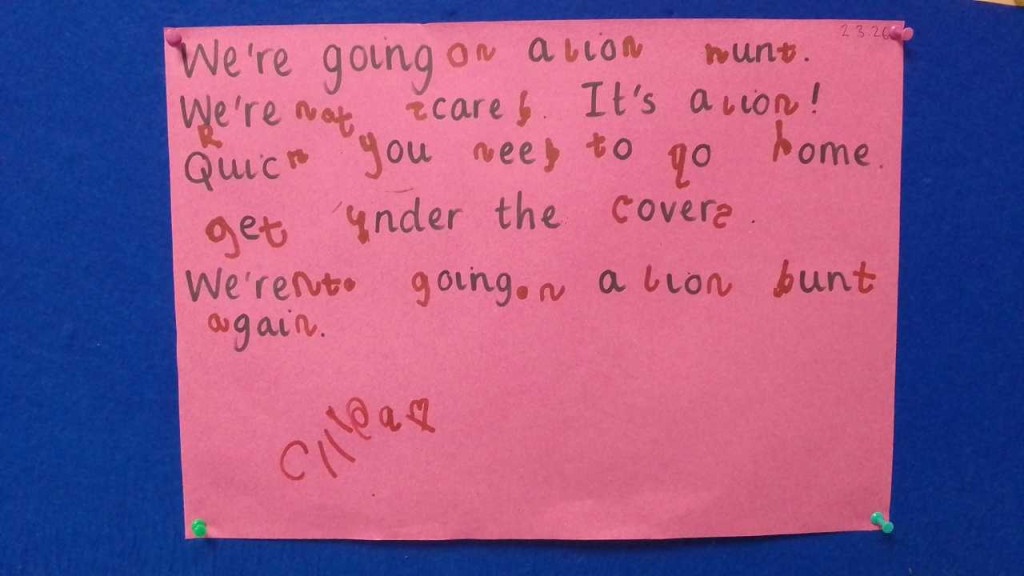 2 3.26
We're going on a lion hunt.
We're not scared. It's a lion!
Quick you need to go home.
get under the covers.
We're nto going on a lion hunt
again.